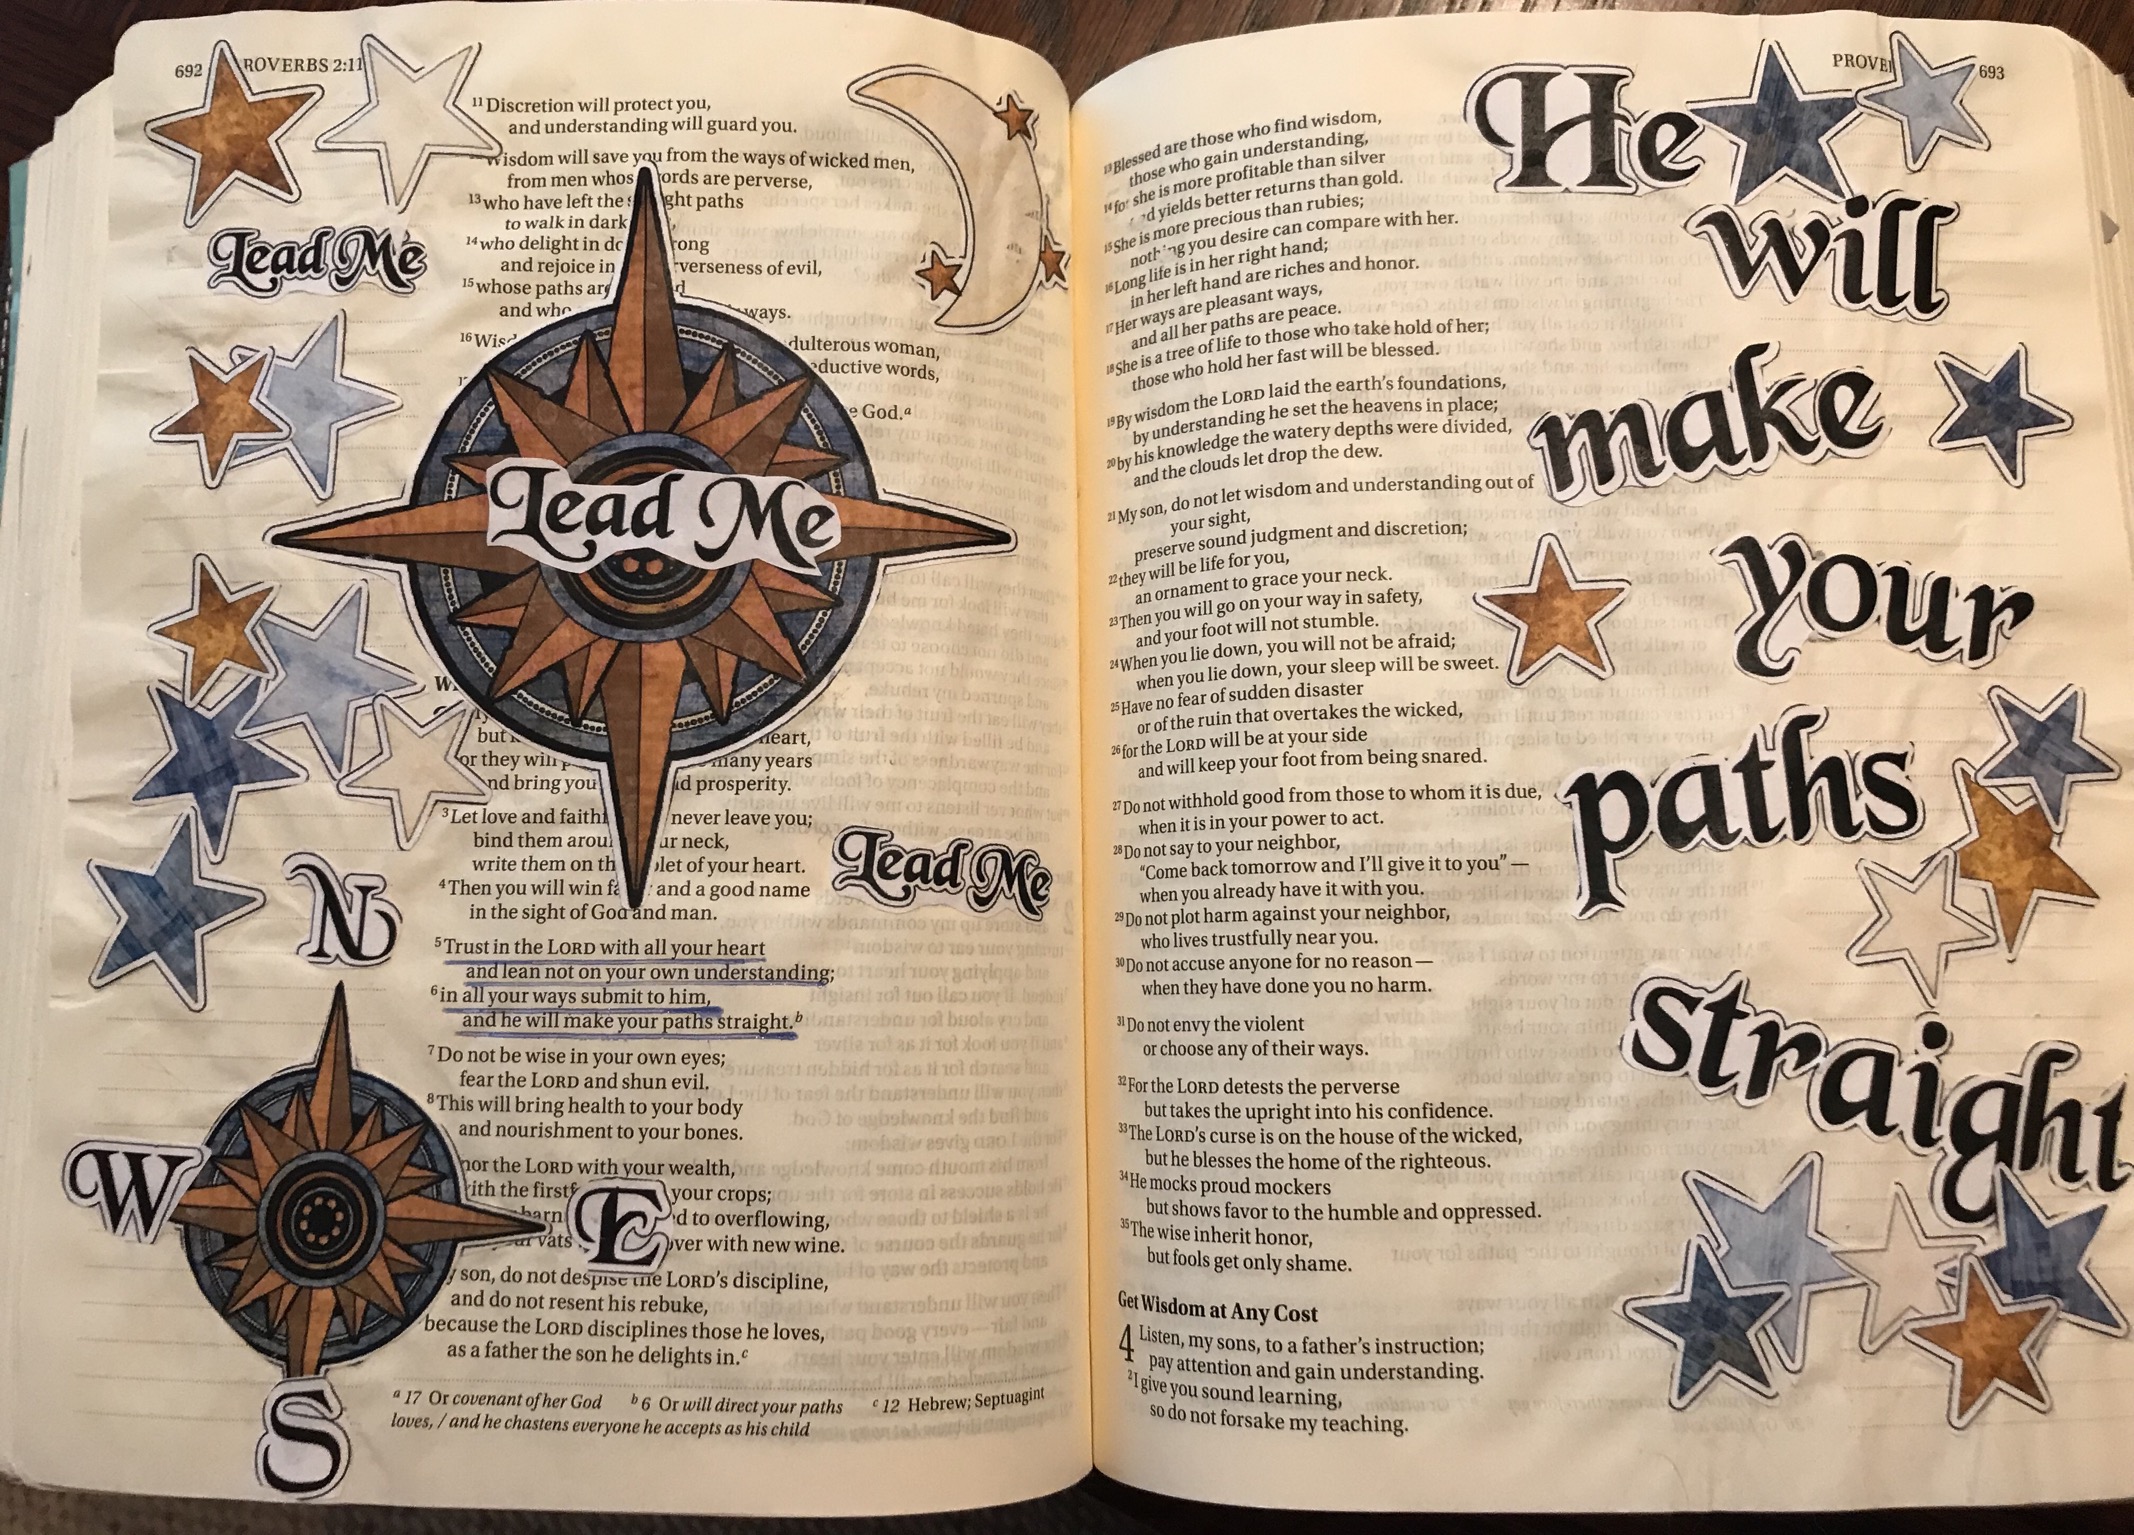 692
ROVERBS 2:11
11 Discretion will protect you,
and understanding will guard you.
Wisdom will save you from the ways of wicked men,
from men whos ords are perverse,
13 who have left the ght paths
to walk in dark
14 who delight in do rong
and rejoice in verseness of evil,
15 whose paths are
and who ways.
16 Wis dulterous woman,
ductive words,
God.a
Lead Me
Lead Me
but heart,
or they will many years
nd bring you d prosperity.
3 Let love and faith never leave you;
bind them arou ur neck,
write them on th let of your heart.
4 Then you will win fa and a good name
in the sight of God and man.
Lead Me
5 Trust in the LORD with all your heart
and lean not on your own understanding;
6 in all your ways submit to him,
and he will make your paths straight.b
7 Do not be wise in your own eyes;
fear the LORD and shun evil.
8 This will bring health to your body
and nourishment to your bones.
nor the LORD with your wealth,
ith the firstf your crops;
barn d to overflowing,
vats over with new wine.
y son, do not despise the LORD's discipline,
and do not resent his rebuke,
because the LORD disciplines those he loves,
as a father the son he delights in.c
N
W
E
S
a 17 Or covenant of her God b 6 Or will direct your paths c 12 Hebrew; Septuagint
loves, / and he chastens everyone he accepts as his child
PROVE
693
13 Blessed are those who find wisdom,
those who gain understanding,
14 for she is more profitable than silver
d yields better returns than gold.
15 She is more precious than rubies;
nothing you desire can compare with her.
16 Long life is in her right hand;
in her left hand are riches and honor.
17 Her ways are pleasant ways,
and all her paths are peace.
18 She is a tree of life to those who take hold of her;
those who hold her fast will be blessed.
19 By wisdom the LORD laid the earth's foundations,
by understanding he set the heavens in place;
20 by his knowledge the watery depths were divided,
and the clouds let drop the dew.
21 My son, do not let wisdom and understanding out of
your sight,
preserve sound judgment and discretion;
22 they will be life for you,
an ornament to grace your neck.
23 Then you will go on your way in safety,
and your foot will not stumble.
24 When you lie down, you will not be afraid;
when you lie down, your sleep will be sweet.
25 Have no fear of sudden disaster
or of the ruin that overtakes the wicked,
26 for the LORD will be at your side
and will keep your foot from being snared.
27 Do not withhold good from those to whom it is due,
when it is in your power to act.
28 Do not say to your neighbor,
“Come back tomorrow and I'll give it to you”—
when you already have it with you.
29 Do not plot harm against your neighbor,
who lives trustfully near you.
30 Do not accuse anyone for no reason—
when they have done you no harm.
31 Do not envy the violent
or choose any of their ways.
32 For the LORD detests the perverse
but takes the upright into his confidence.
33 The LORD's curse is on the house of the wicked,
but he blesses the home of the righteous.
34 He mocks proud mockers
but shows favor to the humble and oppressed.
35 The wise inherit honor,
but fools get only shame.
Get Wisdom at Any Cost
4 Listen, my sons, to a father's instruction;
pay attention and gain understanding.
2 I give you sound learning,
so do not forsake my teaching.
He
will
make
your
paths
straight